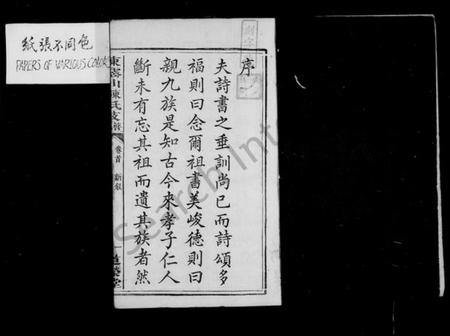 紙張不同色
PAPERS OF VARIOUS COLORS
序
夫詩書之垂訓尚已而詩頌多
福則曰念爾祖書美峻德則曰
親九族是知古今來孝子仁人
斷未有忘其祖而遺其族者然
東 山陳氏支譜
卷首
新叙
堂